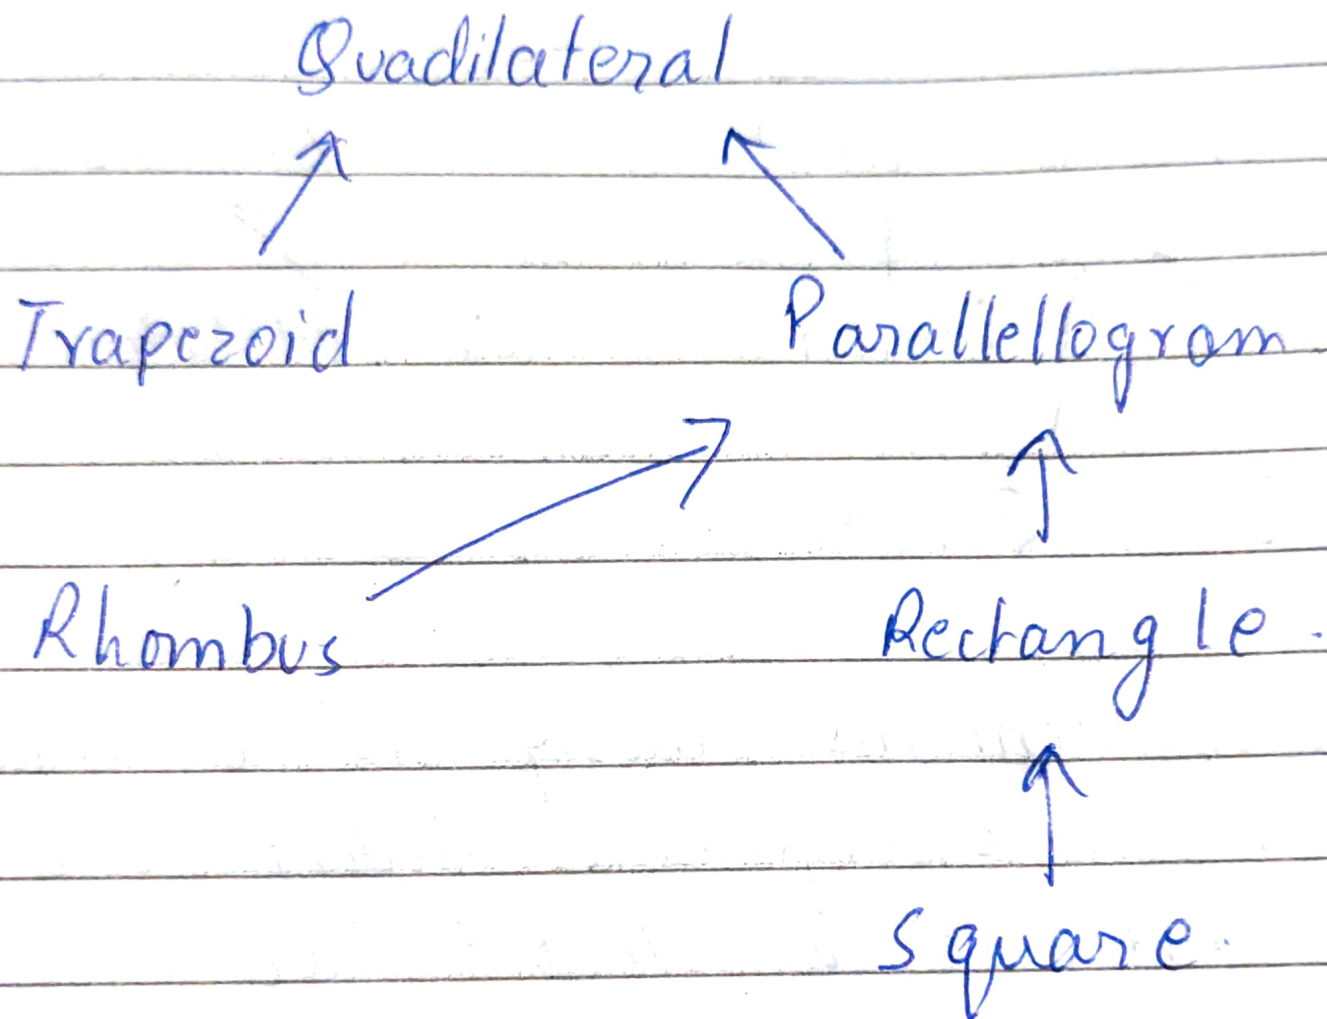 Quadilateral
Trapezoid Parallellogram
Rhombus Rectangle.
Square.